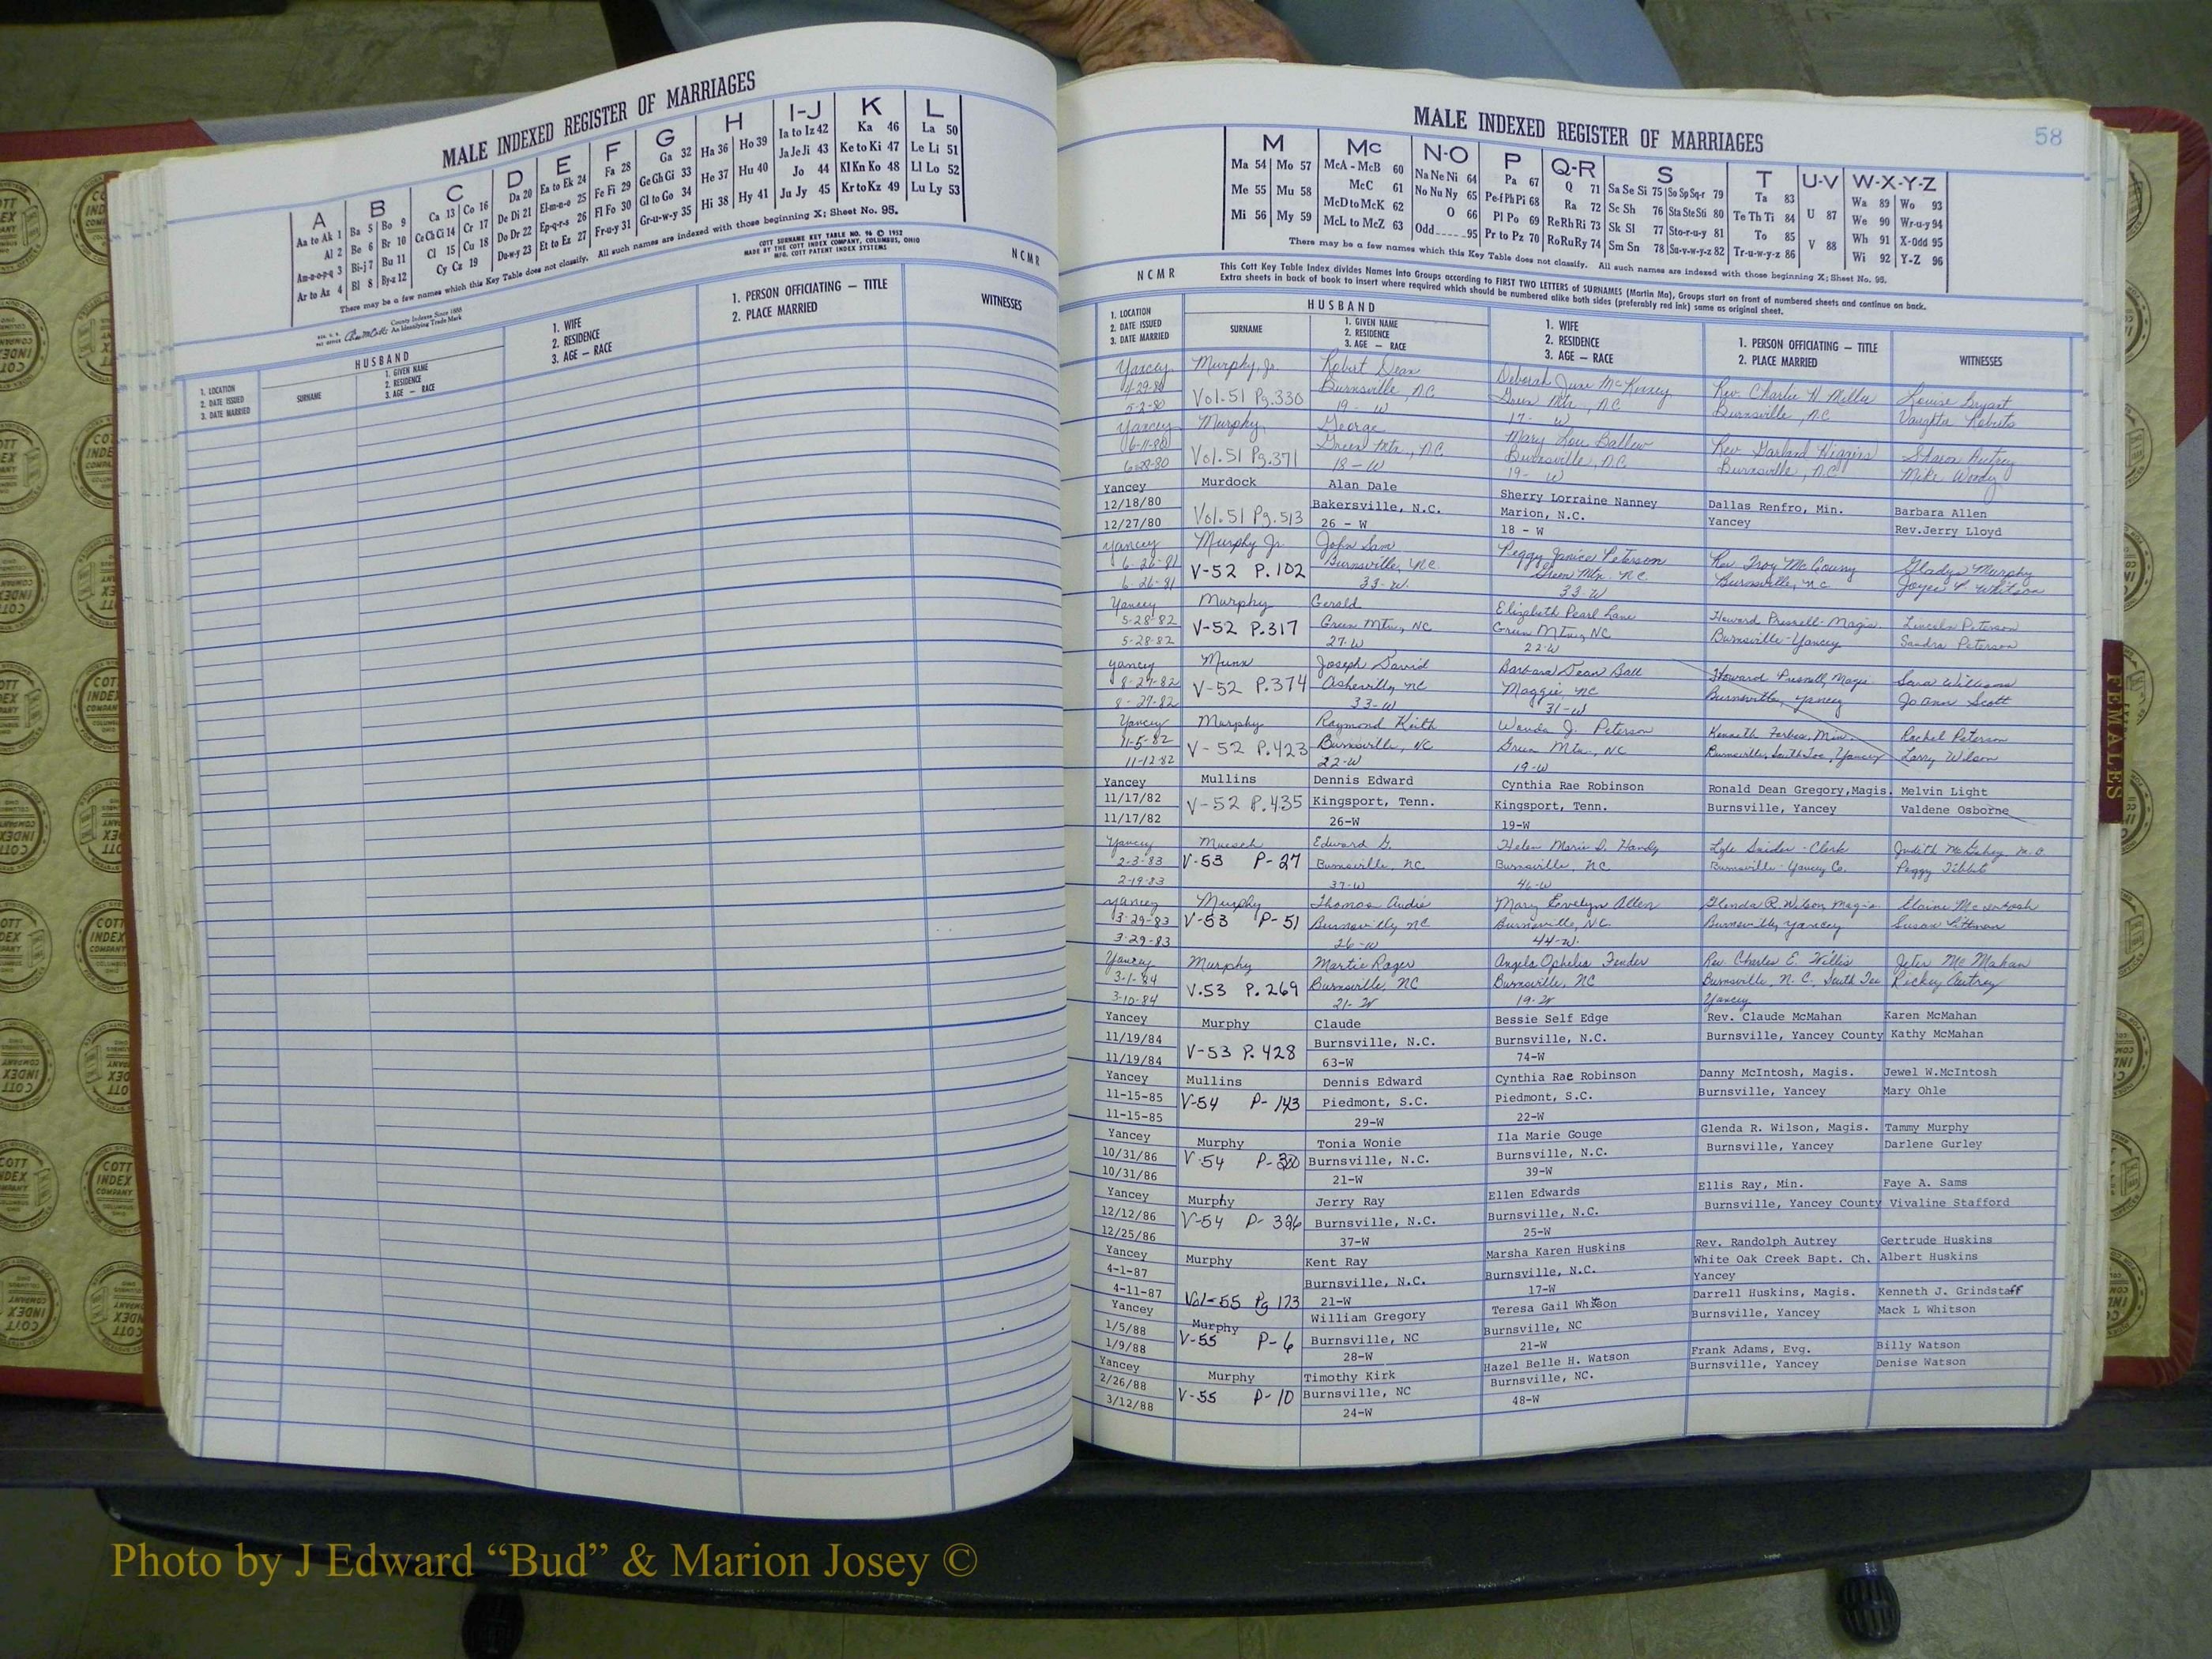 MALE INDEXED REGISTER OF MARRIAGES
A B C D E F G H I-J K L
Aa to Ak 1 Ba 5 Bo 9 Ca 13 Co 16 Da 20 Ea to Ek 24 Fa 28 Ga 32 Ha 36 Ho 39 Ia to Iz 42 Ka 46 La 50
Al 2 Be 6 Br 10 Ce Ch Ci 14 Cr 17 De Di 21 El-m-n-o 25 Fe Fi 29 Ge Gh Gi 33 He 37 Hu 40 Ja Je Ji 43 Ke to Ki 47 Le Li 51
Am-n-o-p-q 3 Bi-j 7 Bu 11 Cl 15 Cu 18 Do Dr 22 Ep-q-r-s 26 Fl Fo 30 Gl to Go 34 Hi 38 Hy 41 Jo 44 Kl Kn Ko 48 Ll Lo 52
Ar to Az 4 Bl 8 By-z 12 Cy Cz 19 Du-w-y 23 Et to Ez 27 Fr-u-y 31 Gr-u-w-y 35 Ju Jy 45 Kr to Kz 49 Lu Ly 53
There may be a few names which this Key Table does not classify. All such names are indexed with those beginning X; Sheet No. 95.
COTT SURNAME KEY TABLE NO. 96 © 1952
MADE BY THE COTT INDEX COMPANY, COLUMBUS, OHIO
MFG. COTT PATENT INDEX SYSTEMS
NCMR
County Indexes Since 1888
An Identifying Trade Mark
1. LOCATION
2. DATE ISSUED
3. DATE MARRIED
HUSBAND
SURNAME
1. GIVEN NAME
2. RESIDENCE
3. AGE — RACE
1. WIFE
2. RESIDENCE
3. AGE — RACE
1. PERSON OFFICIATING — TITLE
2. PLACE MARRIED
WITNESSES
MALE INDEXED REGISTER OF MARRIAGES
58
M Mc N-O P Q-R S T U-V W-X-Y-Z
Ma 54 Mo 57 McA - McB 60 Na Ne Ni 64 Pa 67 Q 71 Sa Se Si 75 So Sp Sq-r 79 Ta 83 U 87 Wa 89 Wo 93
Me 55 Mu 58 McC 61 No Nu Ny 65 Pe-f Ph Pi 68 Ra 72 Sc Sh 76 Sta Ste Sti 80 Te Th Ti 84 V 88 We 90 Wr-u-y 94
Mi 56 My 59 McD to McK 62 O 66 Pl Po 69 Re Rh Ri 73 Sk Sl 77 Sto-r-u-y 81 To 85 Wh 91 X-Odd 95
McL to McZ 63 Odd 95 Pr to Pz 70 Ro Ru Ry 74 Sm Sn 78 Su-v-w-y-z 82 Tr-u-w-y-z 86 Wi 92 Y-Z 96
There may be a few names which this Key Table does not classify. All such names are indexed with those beginning X; Sheet No. 95.
NCMR
This Cott Key Table Index divides Names into Groups according to FIRST TWO LETTERS of SURNAMES (Martin Ma), Groups start on front of numbered sheets and continue on back.
Extra sheets in back of book to insert where required which should be numbered alike both sides (preferably red ink) same as original sheet.
1. LOCATION
2. DATE ISSUED
3. DATE MARRIED
HUSBAND
SURNAME
1. GIVEN NAME
2. RESIDENCE
3. AGE — RACE
1. WIFE
2. RESIDENCE
3. AGE — RACE
1. PERSON OFFICIATING — TITLE
2. PLACE MARRIED
WITNESSES
Yancey Murphy, Jr. Robert Dean Deborah June McKinney Rev. Charlie H. Miller Louise Bryant
4-29-80 Vol. 51 Pg. 330 Burnsville, NC Green Mtn., NC Burnsville, NC Vaughta Roberts
5-2-80 19 - W 17 - W
Yancey Murphy George Mary Lou Ballew Rev. Garland Higgins Sharon Autrey
6-11-80 Vol. 51 Pg. 371 Green Mtn., NC Burnsville, NC Burnsville, NC Mike Woody
18 - W 19 - W
Yancey Murdock Alan Dale Sherry Lorraine Nanney Dallas Renfro, Min. Barbara Allen
12/18/80 Vol. 51 Pg. 513 Bakersville, N.C. Marion, N.C. Yancey Rev.Jerry Lloyd
12/27/80 26 - W 18 - W
Yancey Murphy Jr. John Sam Peggy Janice Peterson Rev. Troy McCourry Gladys Murphy
6-26-81 V-52 P.102 Burnsville, NC Green Mtn. N.C. Burnsville, NC Joyce P. Whitson
6-26-81 33-W 33-W
Yancey Murphy Gerald Elizabeth Pearl Lane Howard Presnell-Magis. Lincoln Peterson
5-28-82 V-52 P.317 Green Mtn, NC Green Mtn, NC Burnsville-Yancey Sandra Peterson
5-28-82 27-W 22-W
Yancey Munn Joseph David Barbara Dean Ball Howard Presnell, Magis Sara Williams
8-27-82 V-52 P.374 Asheville, NC Maggie, NC Burnsville, Yancey JoAnn Scott
8-27-82 33-W 31-W
Yancey Murphy Raymond Keith Wanda J. Peterson Kenneth Forbes, Min. Rachel Peterson
11-5-82 V-52 P.423 Burnsville, NC Green Mtn., NC Burnsville, South Toe, Yancey Larry Wilson
11-12-82 22-W 19-W
Yancey Mullins Dennis Edward Cynthia Rae Robinson Ronald Dean Gregory,Magis. Melvin Light
11/17/82 V-52 P.435 Kingsport, Tenn. Kingsport, Tenn. Burnsville, Yancey Valdene Osborne
11/17/82 26-W 19-W
Yancey Edward G. Helen Marie D. Handy Lyle Snider - Clerk
2-3-83 V-53 P-27 Burnsville, NC Burnsville, NC Burnsville-Yancey Co. Peggy Tibbits
2-19-83 37-W 46-W
Yancey Murphy Thomas Audie Mary Evelyn Allen Glenda R. Wilson, Magis. Elaine McIntosh
3-29-83 V-53 P-51 Burnsville, NC Burnsville, NC. Burnsville, Yancey Susan Pittman
3-29-83 26-W 44-W.
Yancey Murphy Martie Roger Angela Ophelia Fender Rev. Charles E. Willis Jeter McMahan
3-1-84 V.53 P. 269 Burnsville, NC Burnsville, NC Burnsville, N.C., South Toe Rickey Autrey
3-10-84 21-W 19-W Yancey
Yancey Murphy Claude Bessie Self Edge Rev. Claude McMahan Karen McMahan
11/19/84 V-53 P. 428 Burnsville, N.C. Burnsville, N.C. Burnsville, Yancey County Kathy McMahan
11/19/84 63-W 74-W
Yancey Mullins Dennis Edward Cynthia Rae Robinson Danny McIntosh, Magis. Jewel W.McIntosh
11-15-85 V-54 P-143 Piedmont, S.C. Piedmont, S.C. Burnsville, Yancey Mary Ohle
11-15-85 29-W 22-W
Yancey Murphy Tonia Wonie Ila Marie Gouge Glenda R. Wilson, Magis. Tammy Murphy
10/31/86 V-54 Burnsville, N.C. Burnsville, N.C. Burnsville, Yancey Darlene Gurley
10/31/86 21-W 39-W
Yancey Murphy Jerry Ray Ellen Edwards Ellis Ray, Min. Faye A. Sams
12/12/86 V-54 Burnsville, N.C. Burnsville, N.C. Burnsville, Yancey County Vivaline Stafford
12/25/86 37-W 25-W
Yancey Murphy Kent Ray Marsha Karen Huskins Rev. Randolph Autrey Gertrude Huskins
4-1-87 Burnsville, N.C. Burnsville, N.C. White Oak Creek Bapt. Ch. Albert Huskins
4-11-87 Vol-55 Pg 123 21-W 17-W Yancey
Yancey Murphy William Gregory Teresa Gail Whitson Darrell Huskins, Magis. Kenneth J. Grindstaff
1/5/88 V-55 P-6 Burnsville, NC Burnsville, NC Burnsville, Yancey Mack L Whitson
1/9/88 28-W 21-W
Yancey Murphy Timothy Kirk Hazel Belle H. Watson Frank Adams, Evg. Billy Watson
2/26/88 V-55 P-10 Burnsville, NC Burnsville, NC. Burnsville, Yancey Denise Watson
3/12/88 24-W 48-W
FEMALES
COTT INDEX COMPANY COLUMBUS OHIO
Photo by J Edward “Bud” & Marion Josey ©